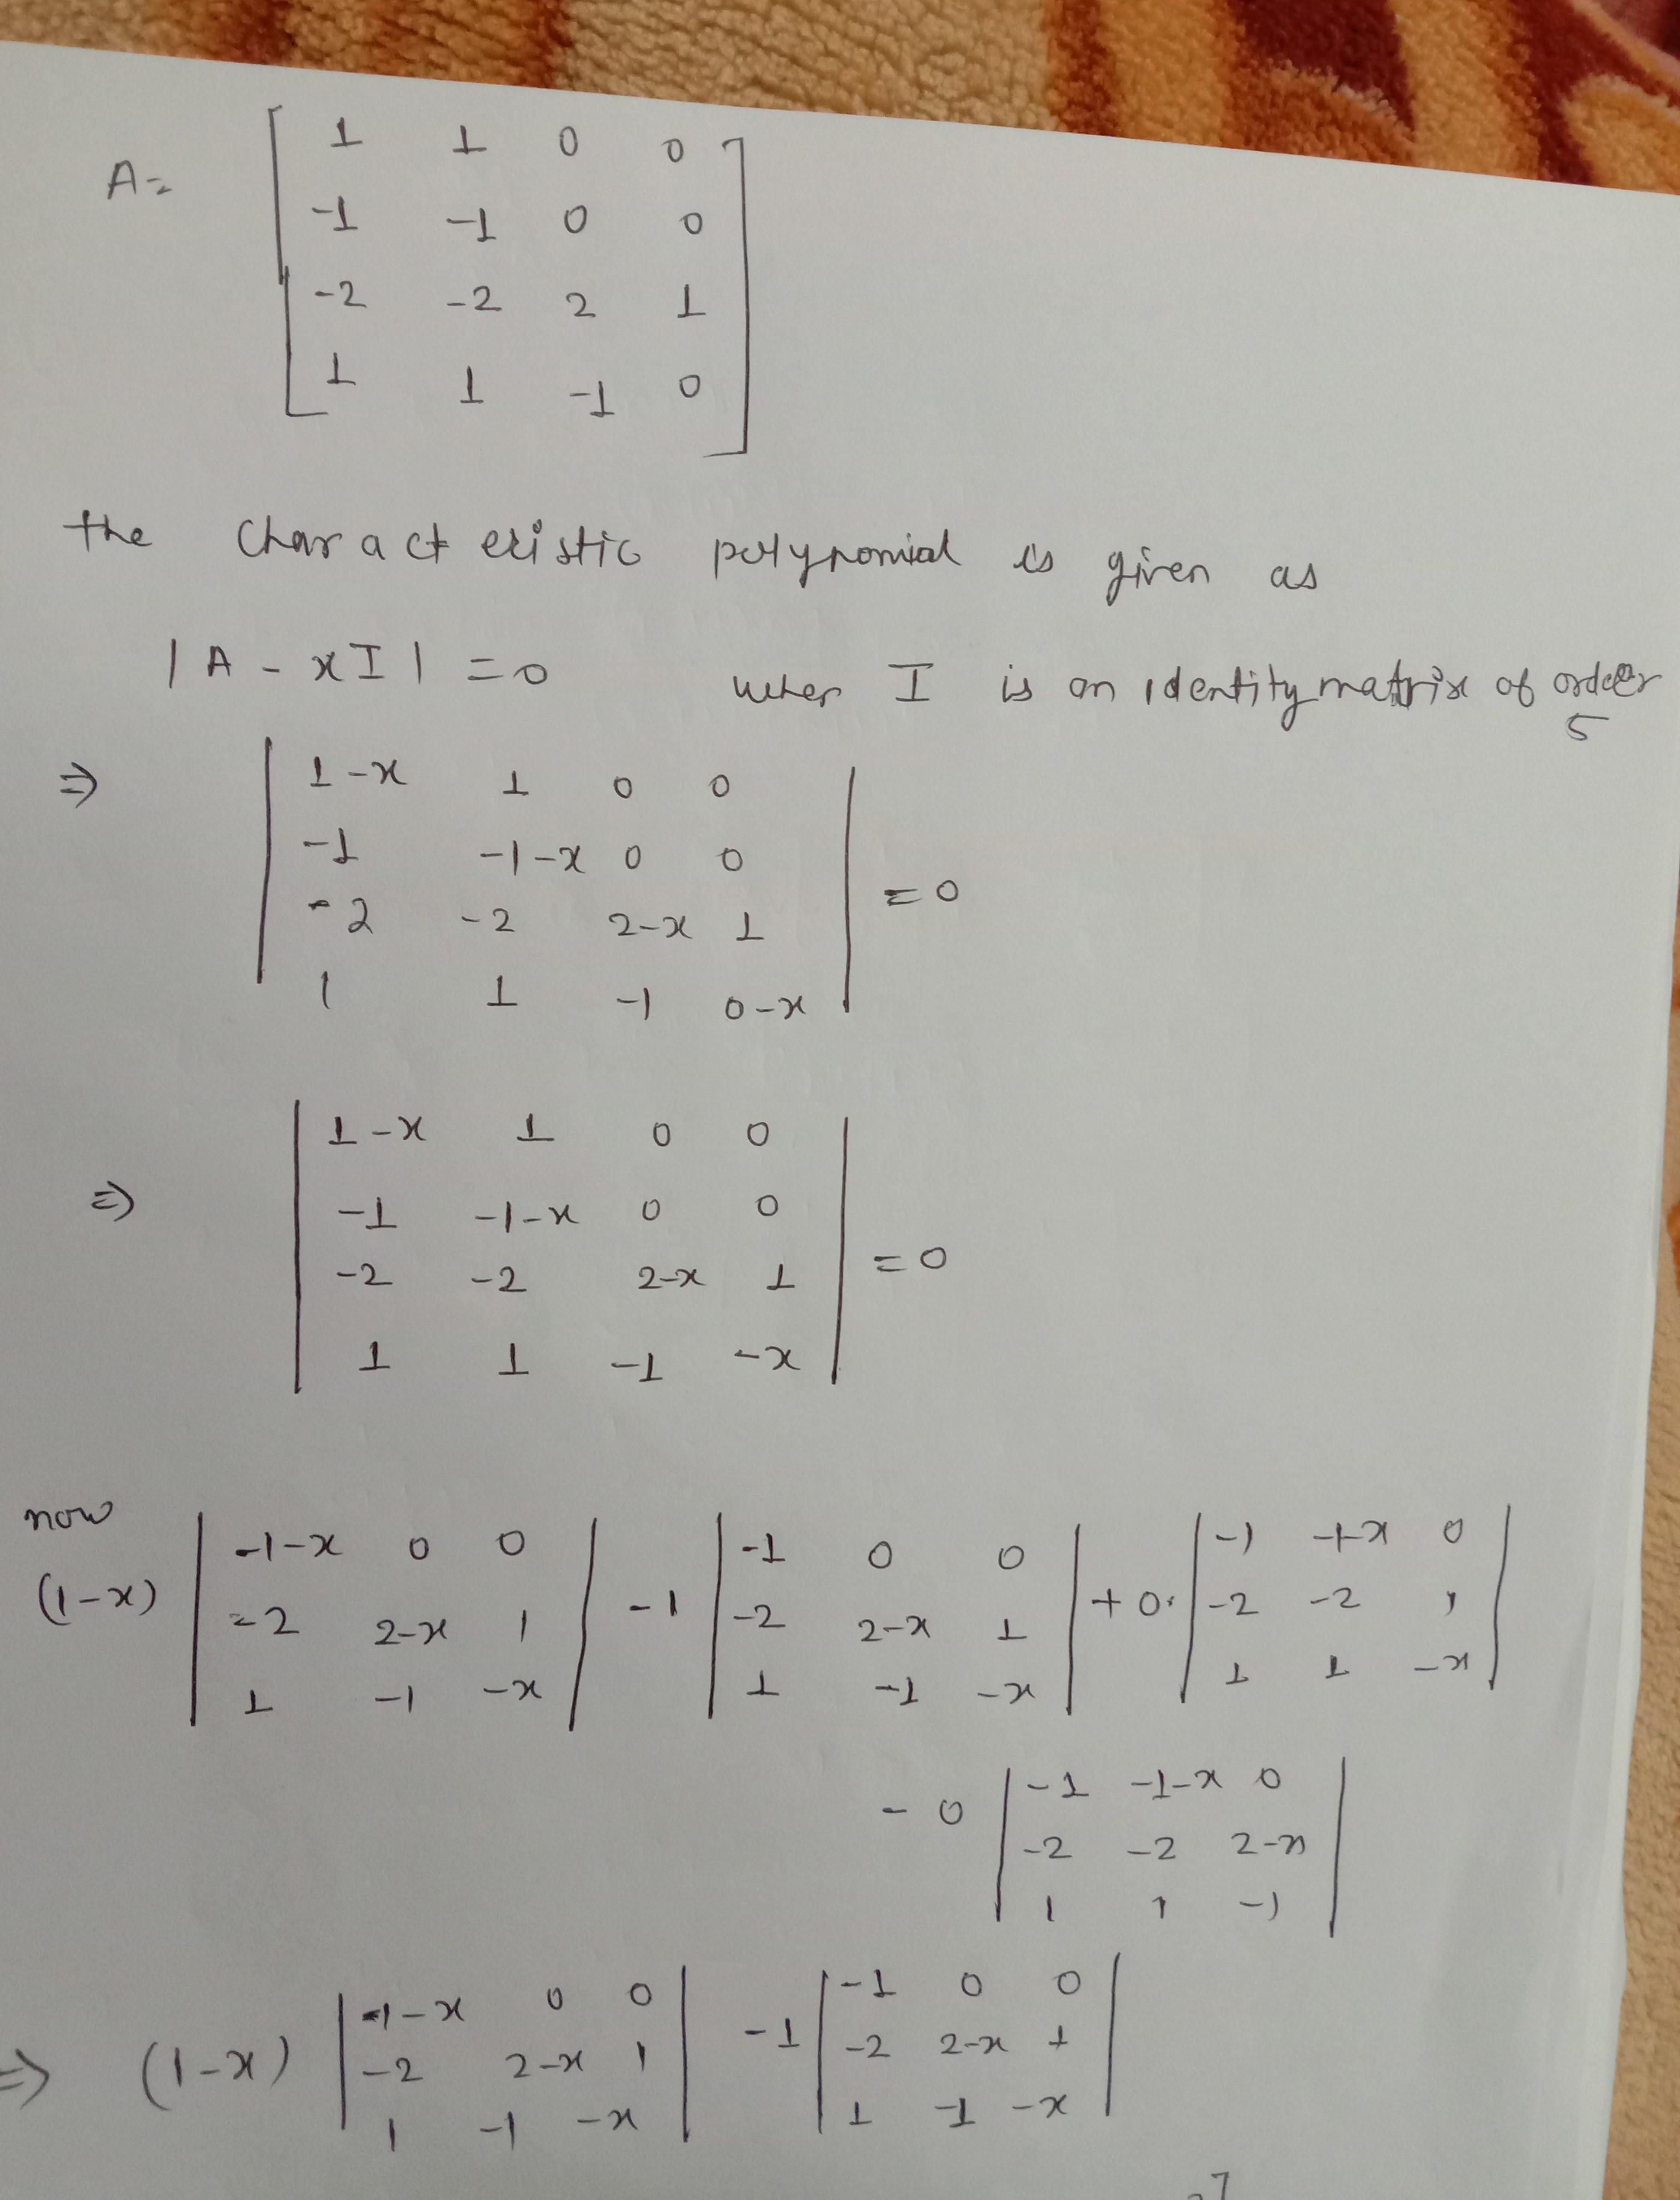 A = [ 1 1 0 0
-1 -1 0 0
-2 -2 2 1
1 1 -1 0 ]
the characteristic polynomial is given as
|A - xI| = 0 when I is an identity matrix of order
5
⇒ | 1-x 1 0 0 |
| -1 -1-x 0 0 |
| -2 -2 2-x 1 | = 0
| 1 1 -1 0-x |
⇒ | 1-x 1 0 0 |
| -1 -1-x 0 0 |
| -2 -2 2-x 1 | = 0
| 1 1 -1 -x |
now
(1-x) | -1-x 0 0 | -1 | -1 0 0 | + 0. | -1 -1-x 0 |
| -2 2-x 1 | | -2 2-x 1 | | -2 -2 1 |
| 1 -1 -x | | 1 -1 -x | | 1 1 -x |
- 0 | -1 -1-x 0 |
| -2 -2 2-x |
| 1 1 -1 |
⇒ (1-x) | -1-x 0 0 | -1 | -1 0 0 |
| -2 2-x 1 | | -2 2-x 1 |
| 1 -1 -x | | 1 -1 -x |